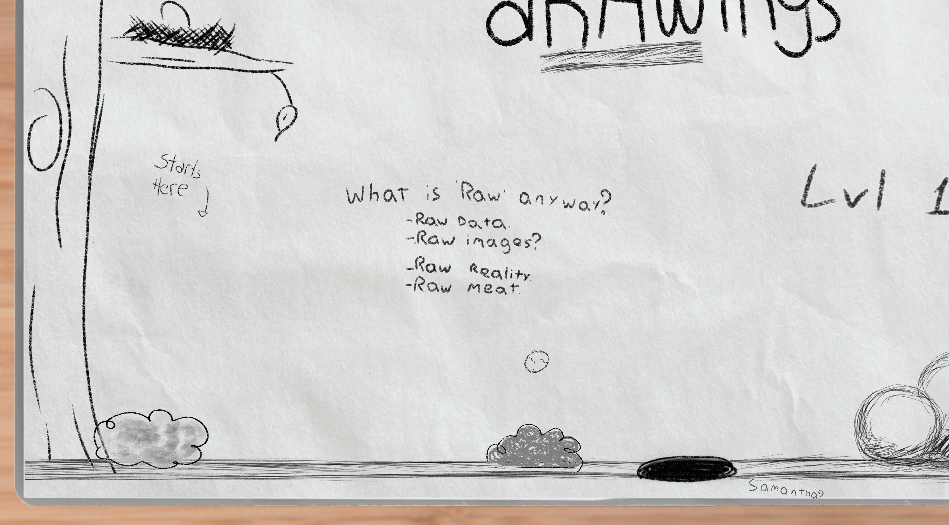 drAwings
Starts
Here
Lvl 1
What is 'Raw' anyway?
-Raw Data.
-Raw images?
-Raw Reality.
-Raw Meat.
Samantha?